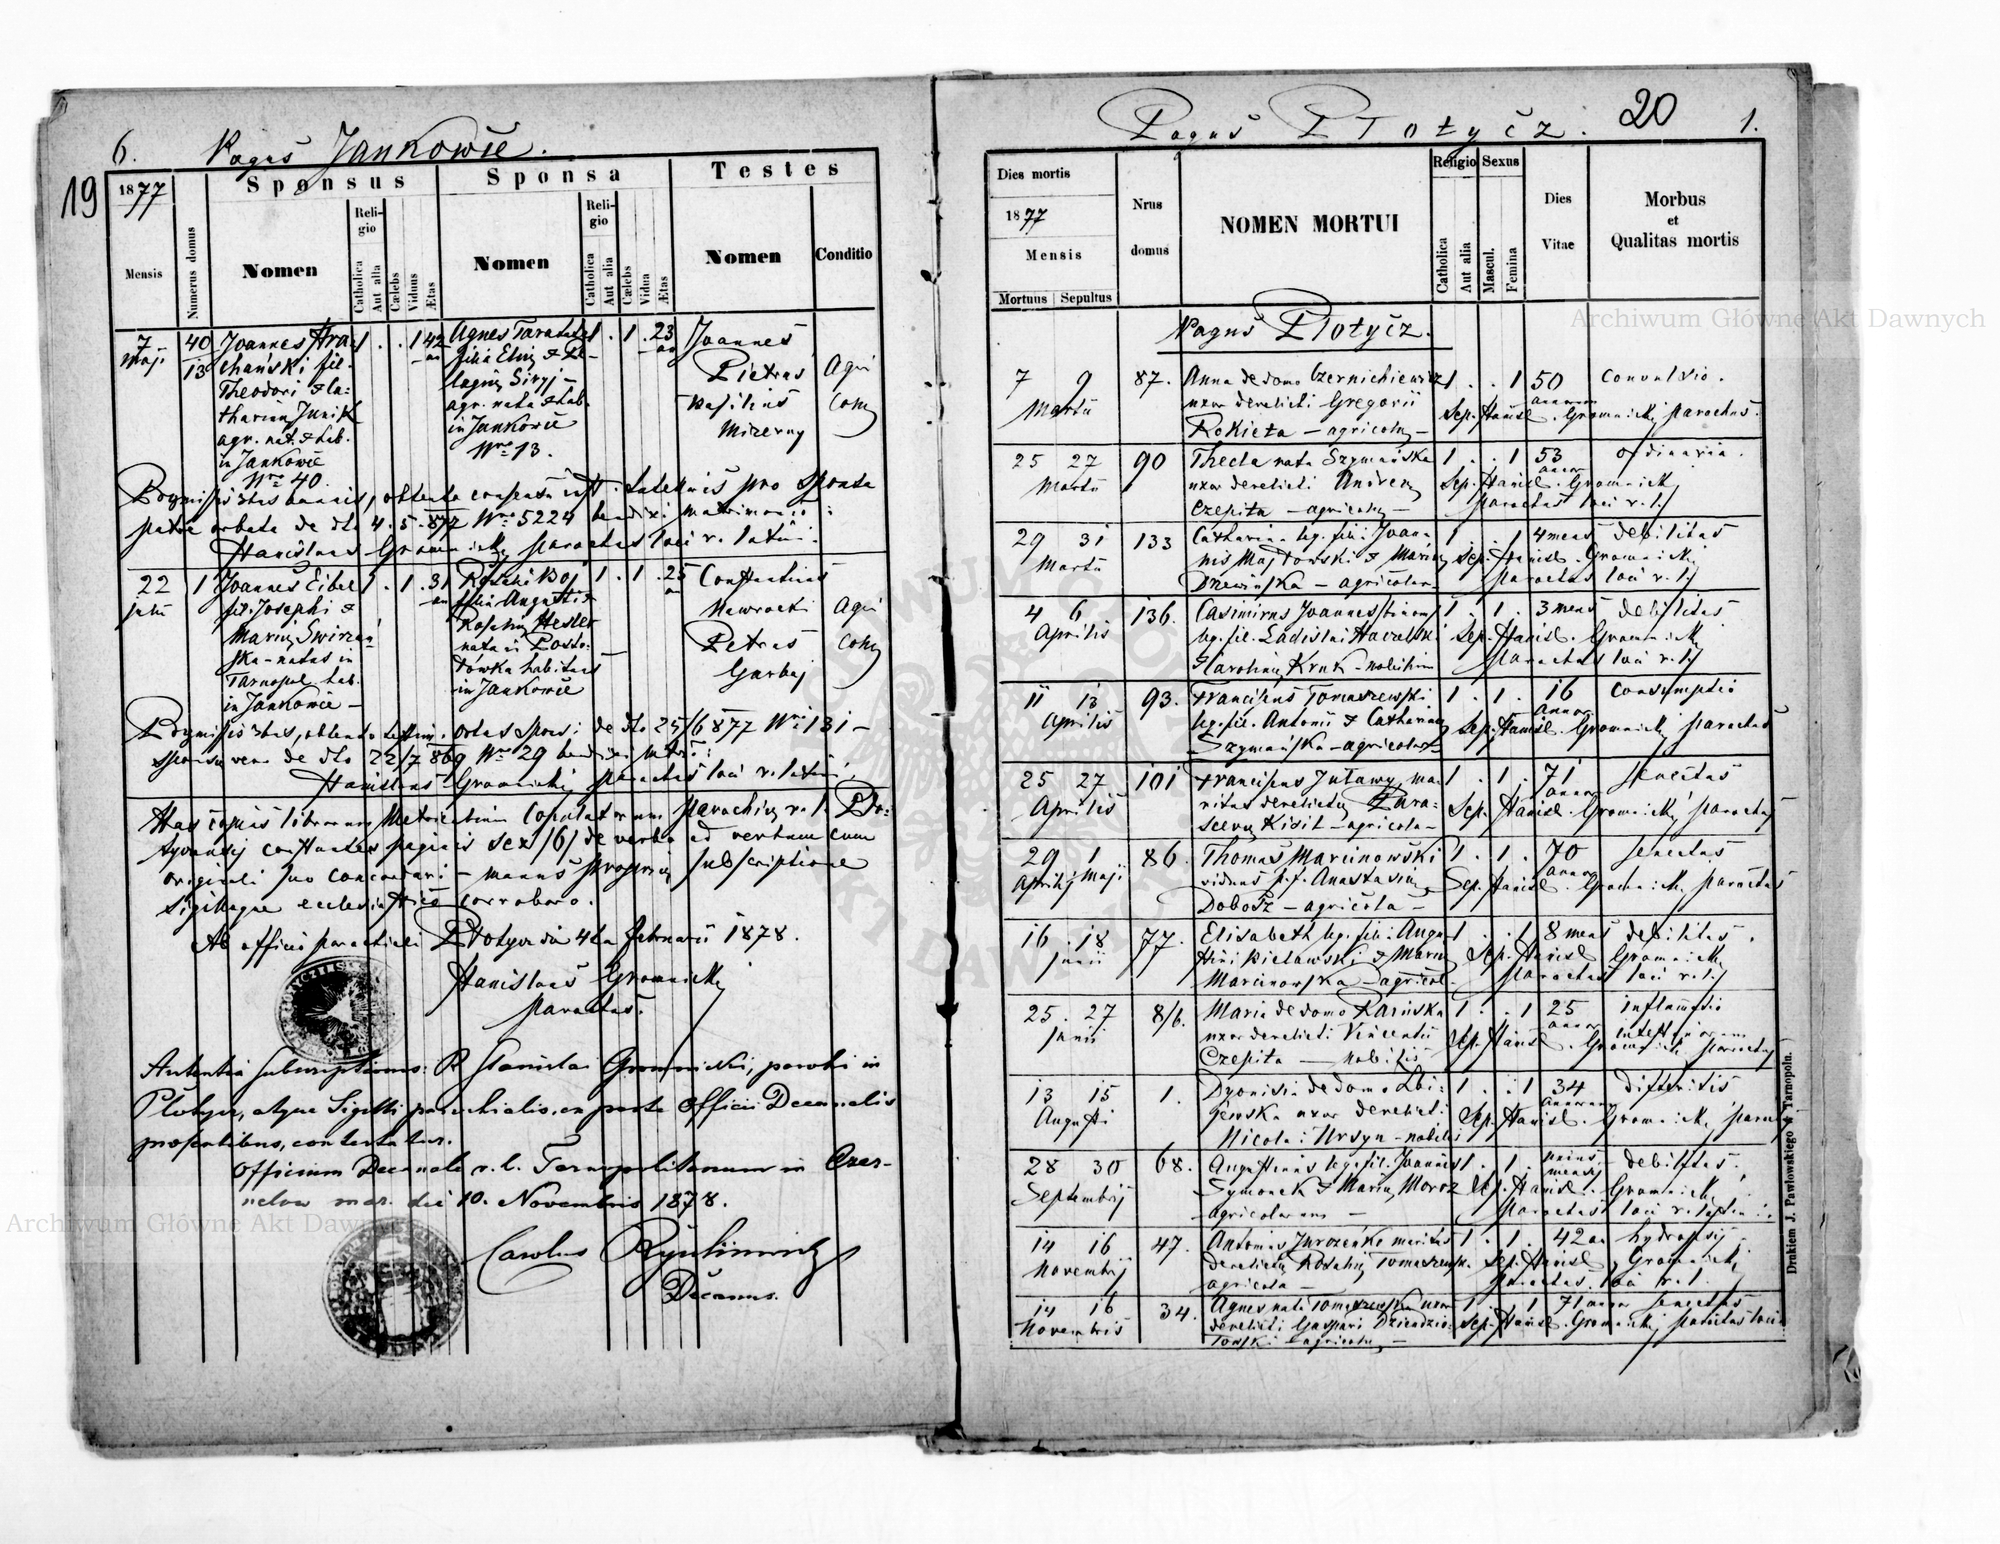 6. Pagus Jankowce.
19
1877
Sponsus Sponsa Testes
Mensis
Numerus domus
Nomen
Religio
Catholica
Aut alia
Cælebs
Viduus
Ætas
Nomen
Religio
Catholica
Aut alia
Cælebs
Vidua
Ætas
Nomen
Conditio
7 40 Joannes Hra- 1 . . 1 42 Agnes 1 . 1 . 23 Joannes
Maji 13 chański fil. filia Pietras Agri
Theodori &
Basilius colæ
agr. nat. & hab. agr. nata & hab. Mizerny
in Jankowce in Jankowce
Nro 40. Nro 13.
Præmissis 3bus bannis, obtento consensu pro sponsa
patre orbata de dto 4.5.877 Nro 5224 benedixi matrimonio:
Stanislaus Gromnicki parochus loci r. latini.
22 1 Joannes Eibel 1 . 1 . 31 1 . 1 . 25
fil. Josephi & filia Augusti & Nawrocki Agri
Mariæ Petrus colæ
ska - natus in nata in
Tarnopol hab. habitans Garbaj
in Jankowce - in Jankowce
Præmissis 3bus, de dto 25/6 877 Nro 131 -
sponsæ vero de dto 22/7 869 Nro 29
Stanislaus Gromnicki parochus loci r. latini.
Has copias librorum Metricalium Copulatorum parochiæ r. l. Pło-
constantes paginis sex /6/ de verbo ad verbum cum
originali suo concordari - manus propriæ subscriptione
sigilloque ecclesiastico corroboro.
Ab officio parochiali Płotycz die 4ta Februarii 1878.
Stanislaus Gromnicki
parochus.
subscriptionis: R. Stanislai Gromnicki, parochi in
Płotycz, atque Sigilli parochialis, ex parte Officii Decanalis
præsentibus, contestatur.
Officium Decanale r. l. Tarnopoliense in Czer-
die 10. Novembris 1878.
Carolus
Decanus.
Pagus Płotycz. 20 1.
Dies mortis
1877
Mensis
Mortuus Sepultus
Nrus domus
NOMEN MORTUI
Religio
Catholica
Aut alia
Sexus
Mascul.
Femina
Dies Vitae
Morbus
et
Qualitas mortis
Pagus Płotycz.
7 9 87. Anna de domo Czernichiewicz 1 . . 1 50 convulsio.
Martii uxor derelicti Gregorii annorum Sep. Stanisl. Gromnicki parochus.
Rokieta - agricolæ -
25 27 90 Thecla nata Szymańska 1 . . 1 53 ordinaria.
Martii uxor derelicti Andreæ annor Sep. Stanisl. Gromnicki
Czepita - agricolæ - parochus loci r. l.
29 31 133 Catharina leg. filia Joan- 1 . . 1 4 mens debilitas
Martii nis Majdowski & Mariæ Sep. Stanisl. Gromnicki
Drzewińska - agricolar. parochus loci r. l.
4 6 136. Casimirus Joannes 1 . 1 . 3 mens debilitas
Aprilis leg. fil. Ladislai Sep. Stanisl. Gromnicki
& Carolinæ Kruk - nobilium parochus loci r. l.
11 13 93. Franciscus Tomaszewski 1 . 1 . 16 consumptio
Aprilis leg. fil. Antonii & Catharinæ annor Sep. Stanisl. Gromnicki parochus
Szymańska - agricolar. -
25 27 101 Franciscus ma- 1 . 1 . 71 senectus
Aprilis ritus derelictæ Para- annor Sep. Stanisl. Gromnicki parochus
scevæ - agricola -
29 1 86. Thomas Marcinowski 1 . 1 . 70 senectus
Aprilis Maji viduus p. f. Anastasiæ annor Sep. Stanisl. Gromnicki parochus
Dobosz - agricola -
16 . 18 77. Elisabeth leg. filia Augu- 1 . . 1 8 mens debilitas.
Junii stini Bielawski & Mariæ Sep. Stanisl. Gromnicki
Marcinowska - agricol. parochus loci r. l.
25 . 27 8/6. Maria de domo Karińska 1 . . 1 25 inflammatio
Junii uxor derelicti Vincentii annor intestinorum
Czepita - nobilis Sep. Stanisl. Gromnicki parochus
13 15 1. Dyonisia de domo Zbi- 1 . . 1 34 difteritis
Augusti uxor derelicti annorum Sep. Stanisl. Gromnicki paroch
Nicolai Ursyn - nobilis
28 30 68. Augustinus leg. fil. Joannis 1 . 1 . unius debilitas.
Septembris Symonek & Mariæ Moroz mensis Sep. Stanisl. Gromnicki
agricolarum - parochus loci r. latini.
14 16 47. Antonius maritus 1 . 1 . 42 an hydropsis
Novembris derelictæ Rosaliæ Tomaszewsk. Sep. Stanisl. Gromnicki
agricola - parochus loci r. l.
14 16 34. Agnes nata Tomaszewska uxor 1 . . 1 71 annor senectus
Novembris derelicti Gaspari Dziendzio- Sep. Stanisl. Gromnicki parochus loci
- agricolæ -
Drukiem J. Pawłowskiego w Tarnopolu.
Archiwum Główne Akt Dawnych
Archiwum Główne Akt Dawnych